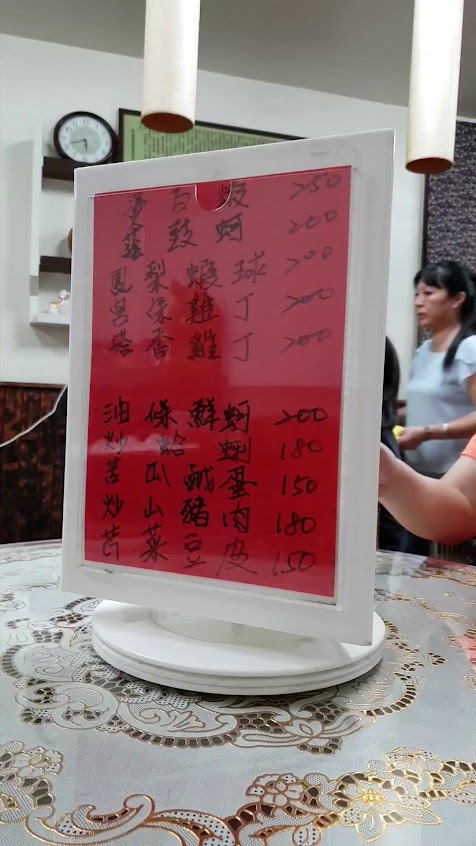 百 250
蔭豉蚵 200
鳳梨蝦球 200
宮保雞丁 200
塔香雞丁 200
油保鮮蚵 200
炒蛤蜊 180
苦瓜鹹蛋 150
炒山豬肉 180
芹菜豆皮 150